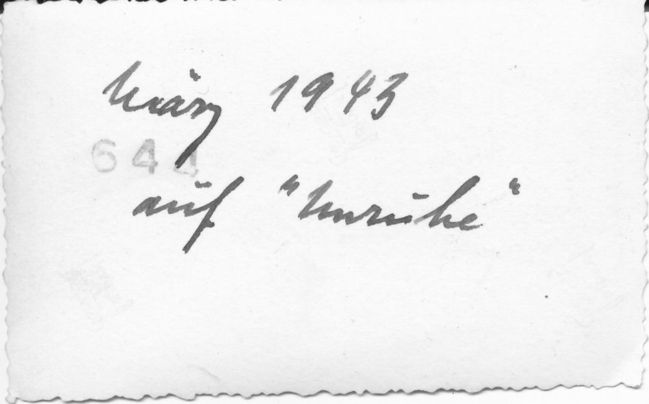 März 1943
644
auf "Unruhe"